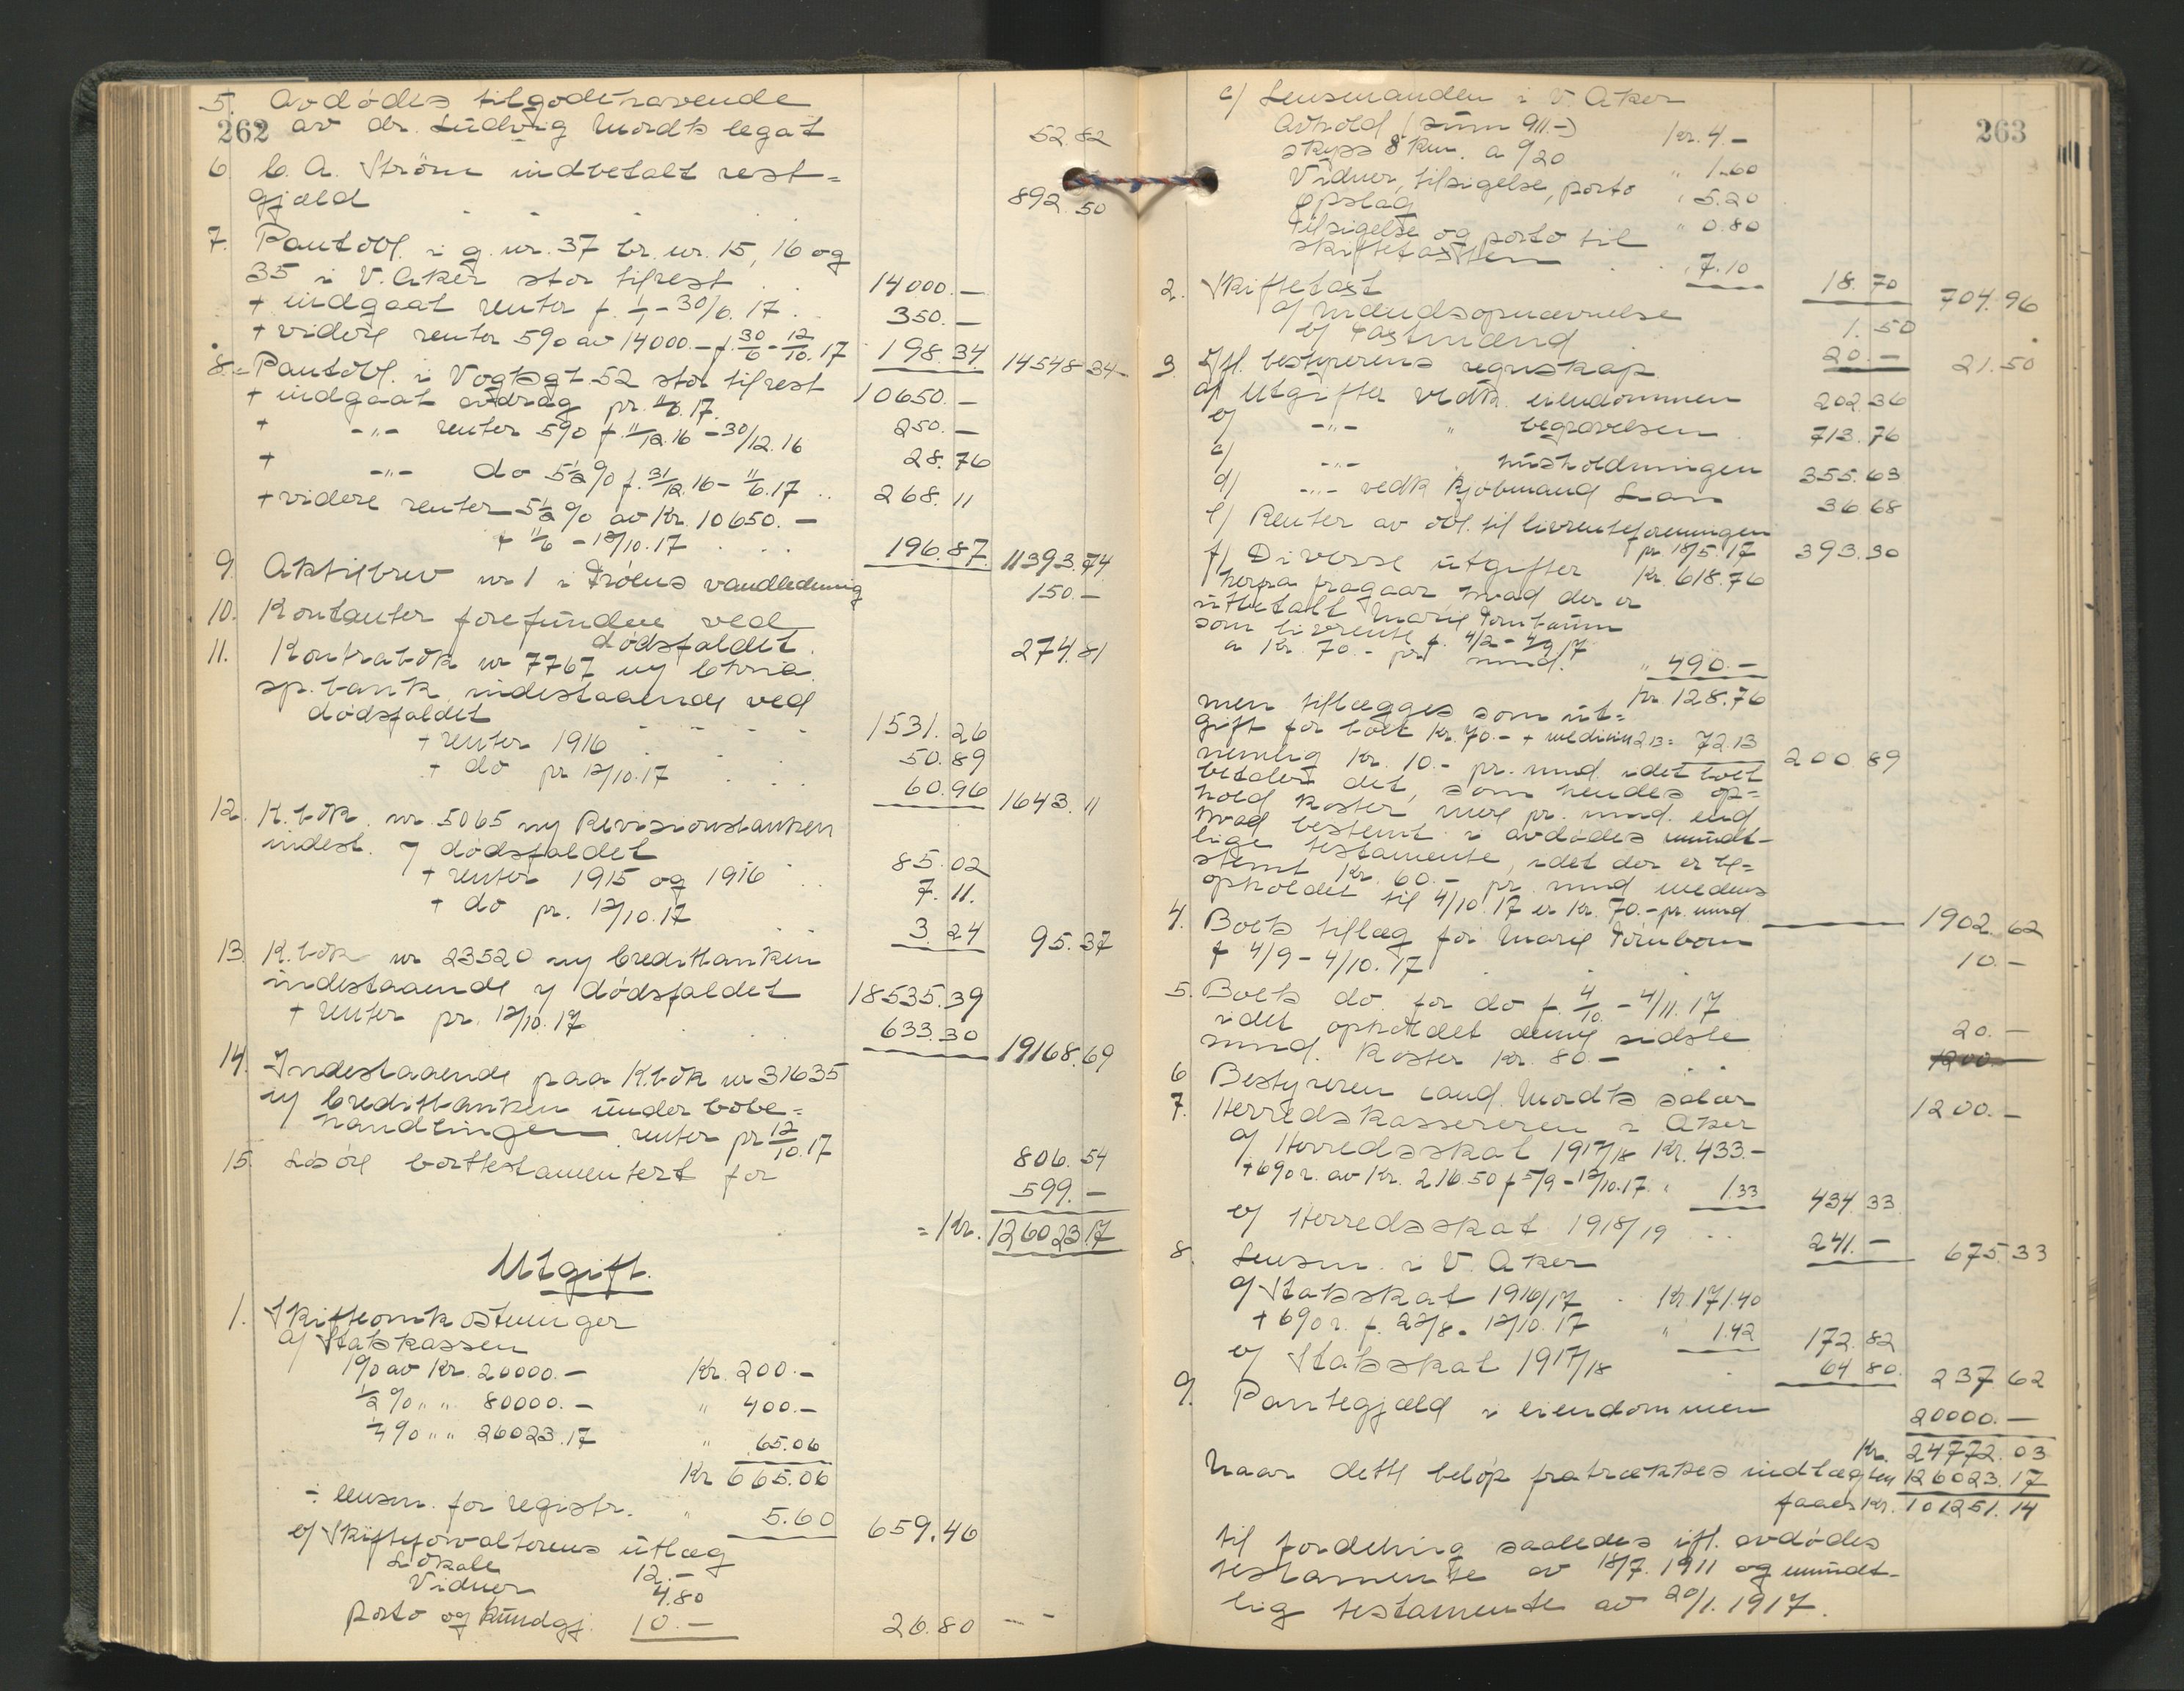 262
5. Avdødes tilgodehavende
av dr. Ludvig Mordts legat 52.82
6. C. A. Strøm indbetalt rest=
gjæld 892.50
7. Pantobl. i g. nr. 37 br. nr. 15, 16 og
35 i V. Aker stor tilrest 14000.—
+ indgaat renter f. 1/1 - 30/6. 17. 350.—
+ videre renter 5% av 14000.— f. 30/6 - 12/10. 17 198.34 14548.34
8. Pantobl. i Vogtsgt 52 stor tilrest 10650.—
+ indgaat avdrag pr. 11/6. 17. 250.—
+ -"- renter 5% f. 11/12. 16 - 30/12. 16 28.76
+ -"- do 5½% f. 31/12. 16 - 11/6. 17 268.11
+ videre renter 5½% av Kr. 10650.—
f 11/6 - 12/10. 17 196.87 11393.74
9. Aktiebrev nr 1 i Trøens vandledning 150.—
10. Kontanter forefundne ved
dødsfaldet. 274.81
11. Kontrabok nr 7767 i/ Chria.
sp.bank indestaaende ved
dødsfaldet 1531.26
+ renter 1916 50.89
+ do pr 12/10. 17 60.96 1643.11
12. K.bok nr. 5065 i/ Revisionsbanken
indest. v/ dødsfaldet 85.02
+ renter 1915 og 1916 7.11.
+ do pr. 12/10. 17 3.24 95.37
13. K.bok nr 23520 i/ Creditbanken
indestaaende v/ dødsfaldet 18535.39
+ renter pr. 12/10. 17 633.30 19168.69
14. Indestaaende paa K.bok nr 31635
i/ Creditbanken under bobe=
handlingen, renter pr 12/10. 17 806.54
15. Løsøre borttestamentert for 599.—
= Kr. 126023.17
Utgift.
1. Skifteomkostninger
a/ Statskassen
1% av Kr. 20000.— Kr. 200.—
½% " " 80000.— " 400.—
¼% " " 26023.17 " 65.06
Kr 665.06
÷ lensm. for registr. " 5.60 659.46
b/ Skifteforvalterens utlæg
Lokale 12.—
Vidner 4.80
Porto og kundgj. 10.— 26.80 — —
263
c/ Lensmanden i V. Aker
Avhold (sum 911.—) Kr. 4.—
skyss 8 km. a 9/20 " 1.60
Vidner, tilsigelse, porto
opslag " 5.20
Tilsigelse og porto til " 0.80
skiftetaksten 7.10 18.70 704.96
2. Skiftetakst
a/ Mændsopnævnelse 1.50
b/ Takstmænd 20.— 21.50
3. Ifl. bestyrerens regnskap
a/ Utgifter vedk. eiendommen 202.36
b/ -"- " begravelsen 713.76
c/ -"- " husholdningen 355.63
d/ -"- vedk Kjøbmand 36.68
e/ Renter av obl. til livrenteforeningen
pr. 18/5. 17 393.30
f/ Diverse utgifter Kr. 618.76
herfra fragaar hvad der er
utbetalt Marie Tornbaum
som livrente f. 4/2 - 4/9 17
a Kr. 70.- pr. mnd. " 490.—
Kr. 128.76
men tillægges som ut=
gift for boet Kr. 70.- + medicin 2.13 = 72.13 200.89
nemlig Kr. 10.- pr. mnd. idet boet
betaler det, som hendes op=
hold koster mere pr. mnd. end
hvad bestemt i avdødes mundt-
lige testamente, idet der er be=
stemt Kr. 60.- pr. mnd medens
opholdet til 4/10. 17 er Kr. 70.- pr. mnd 1902.62
4. Boets tillæg for Marie Tornbom
f 4/9 - 4/10. 17 10.—
5. Boets do for do f. 4/10 - 4/11. 17
idet opholdet denne sidste 20.—
mnd. koster Kr. 80.— 1200.—
6 Bestyreren cand. Mordts salær 1200.—
7. Herredskassereren i Aker
a/ Herredsskat 1917/18 Kr. 433.—
+ 6% r. av Kr. 216.50 f 5/9 - 12/10. 17. " 1.33 434.33
b/ Herredsskat 1918/19 241.— 675.33
8. Lensm. i V. Aker
a/ Statsskat 1916/17 Kr. 171.40
+ 6% r. f. 22/8 - 12/10. 17 " 1.42 172.82
b/ Statsskat 1917/18 64.80. 237.62
9. Pantegjæld i eiendommen 20000.—
Kr. 24772.03
Naar dette beløp fratrækkes indtægten 126023.17
faaes Kr. 101251.14
til fordeling saaledes ifl. avdødes
testamente av 18/7. 1911 og mundt-
lig testamente av 20/1. 1917.